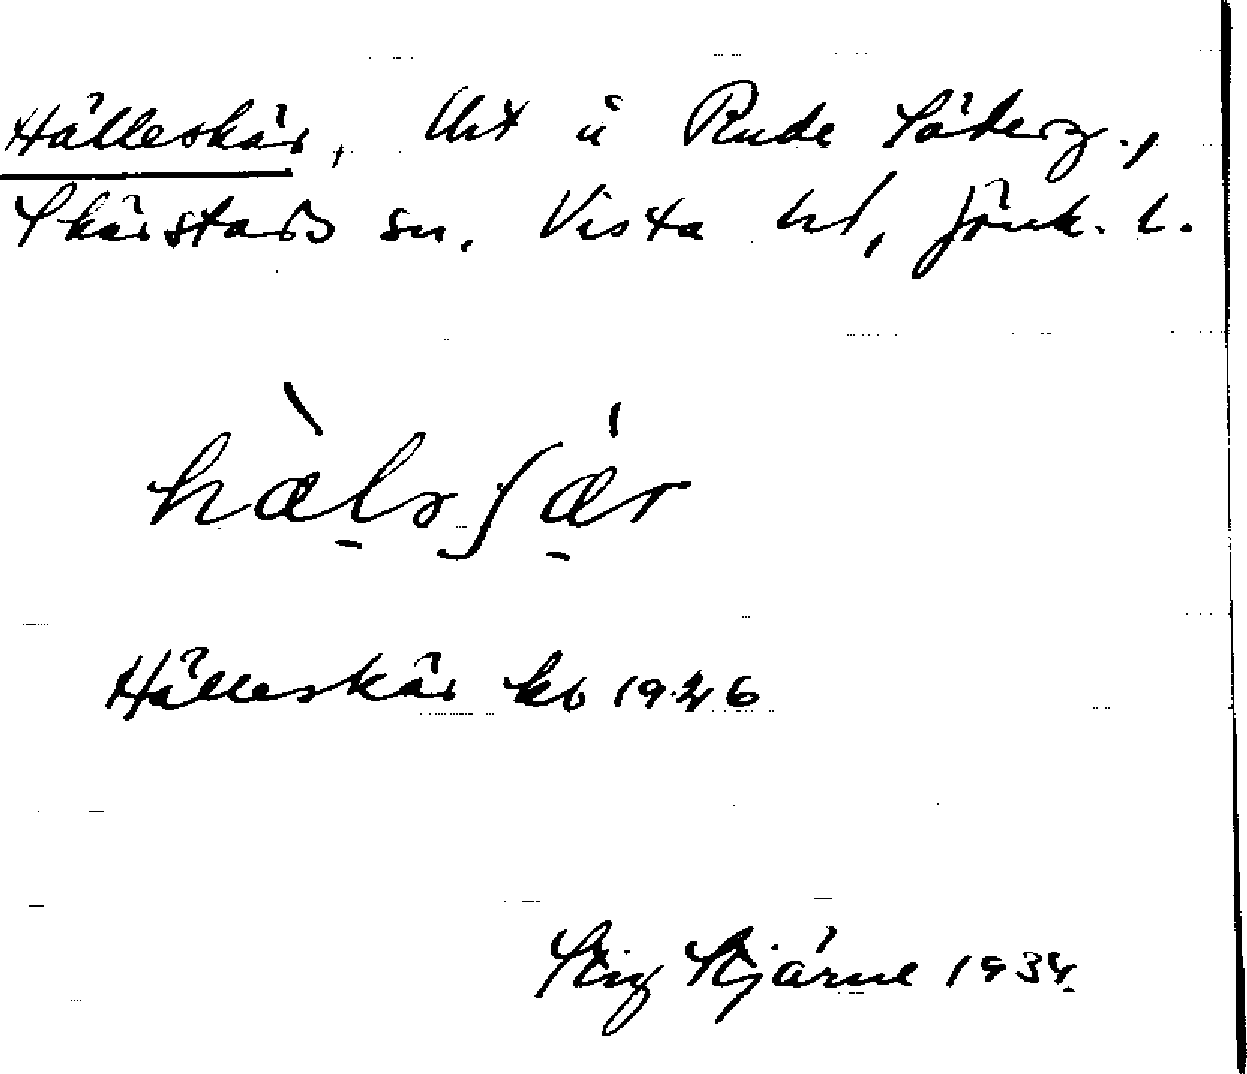 Hälleskär, Uht å Rude Söderg.,
Skärstads sn. Vista hd, Jönk. l.
hælsʃær
Hälleskär kb 1926
Stig Stjärne 1934